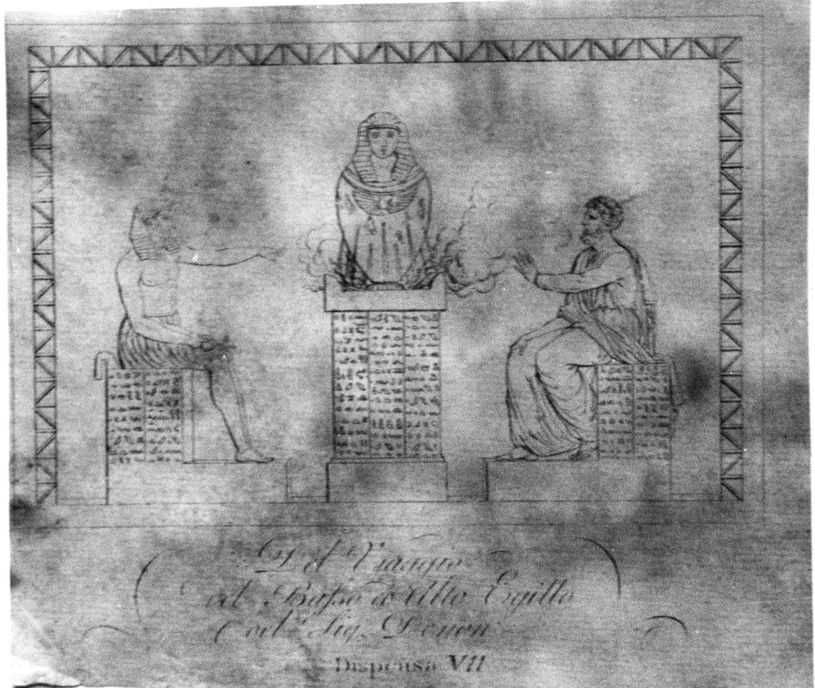 Del Viaggio
nel Basso ed Alto Egitto
del Sig. Denon
Dispensa VII